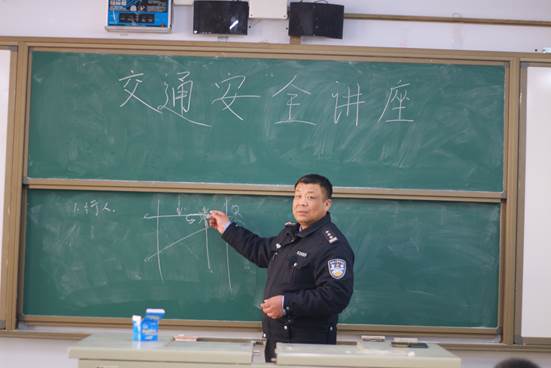 交通安全讲座
1.行人.